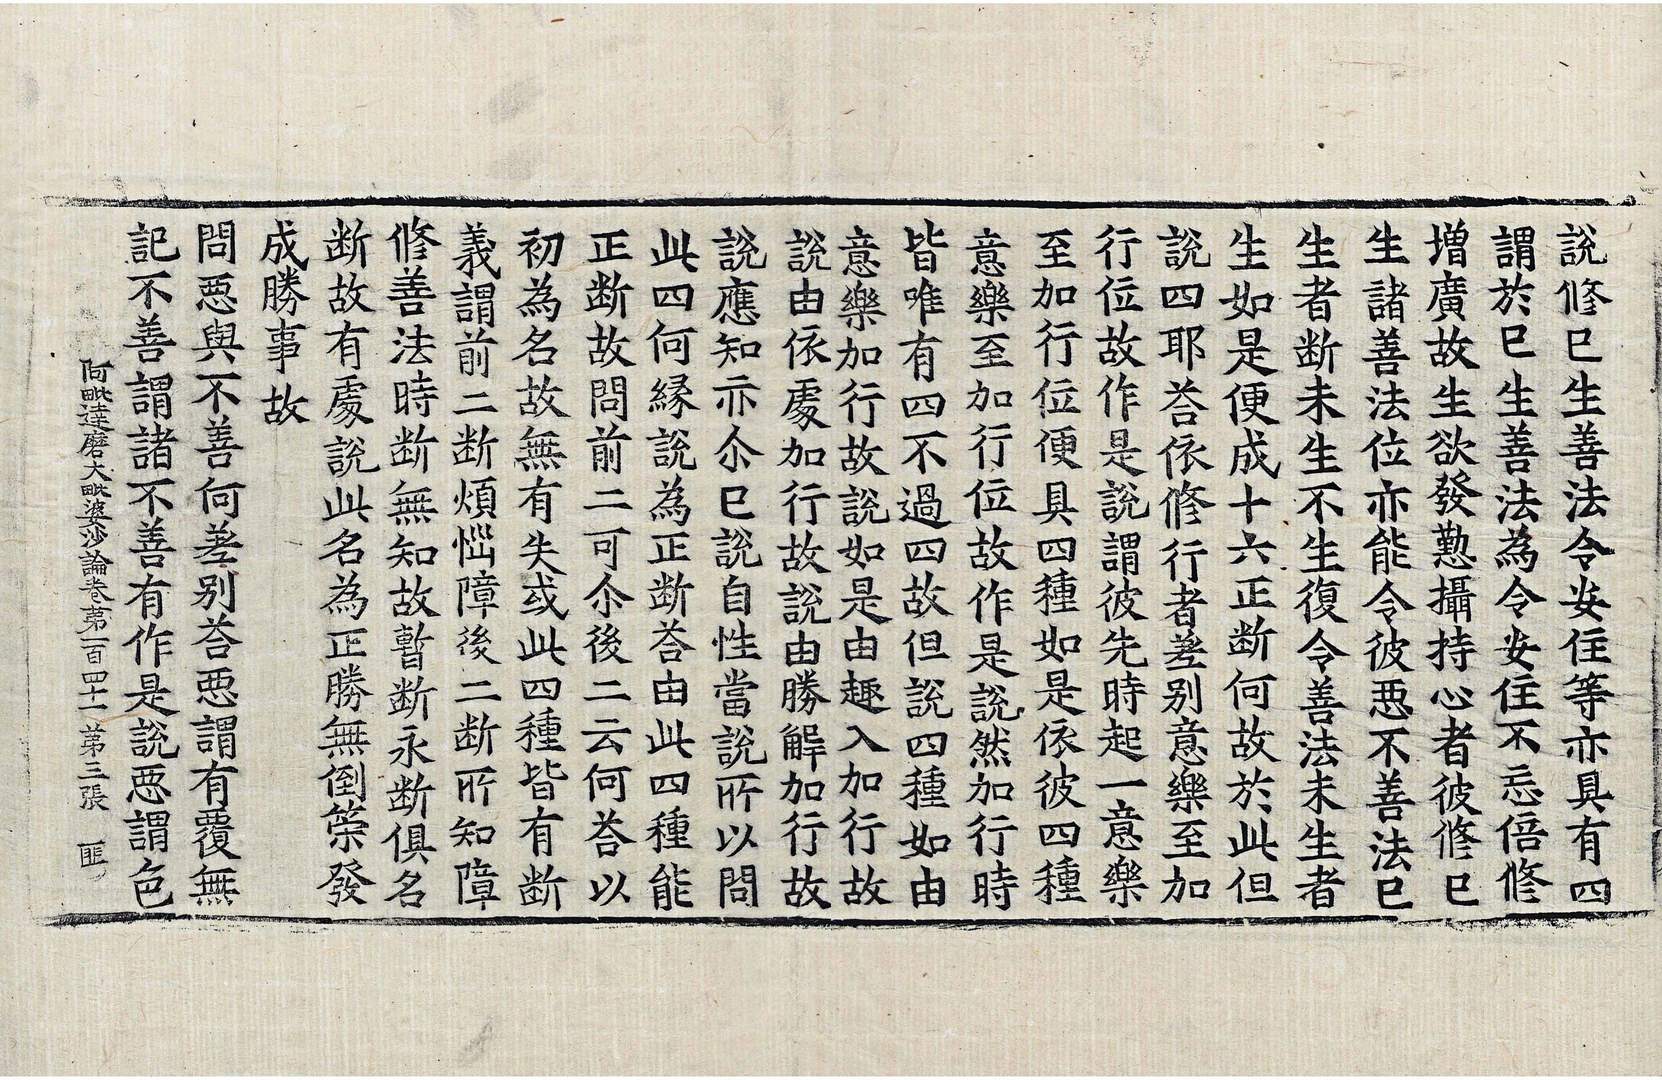 說修已生善法令安住等亦具有四
謂於已生善法為令安住不忘倍修
增廣故生欲發懃攝持心者彼修已
生諸善法位亦能令彼惡不善法已
生者断未生不生復令善法未生者
生如是便成十六正断何故於此但
說四耶荅依修行者差别意樂至加
行位故作是說謂彼先時起一意樂
至加行位便具四種如是依彼四種
意樂至加行位故作是說然加行時
皆唯有四不過四故但說四種如由
意樂加行故說如是由趣入加行故
說由依處加行故說由勝解加行故
說應知亦尒已說自性當說所以問
此四何縁說為正断荅由此四種能
正断故問前二可尒後二云何荅以
初為名故無有失或此四種皆有断
義謂前二断煩惱障後二断所知障
修善法時断無知故暫断永断俱名
断故有處說此名為正勝無倒策發
成勝事故
問惡與不善何差别荅惡謂有覆無
記不善謂諸不善有作是說惡謂色
阿毗達磨大毗婆沙論卷第一百四十一 第三張 匪